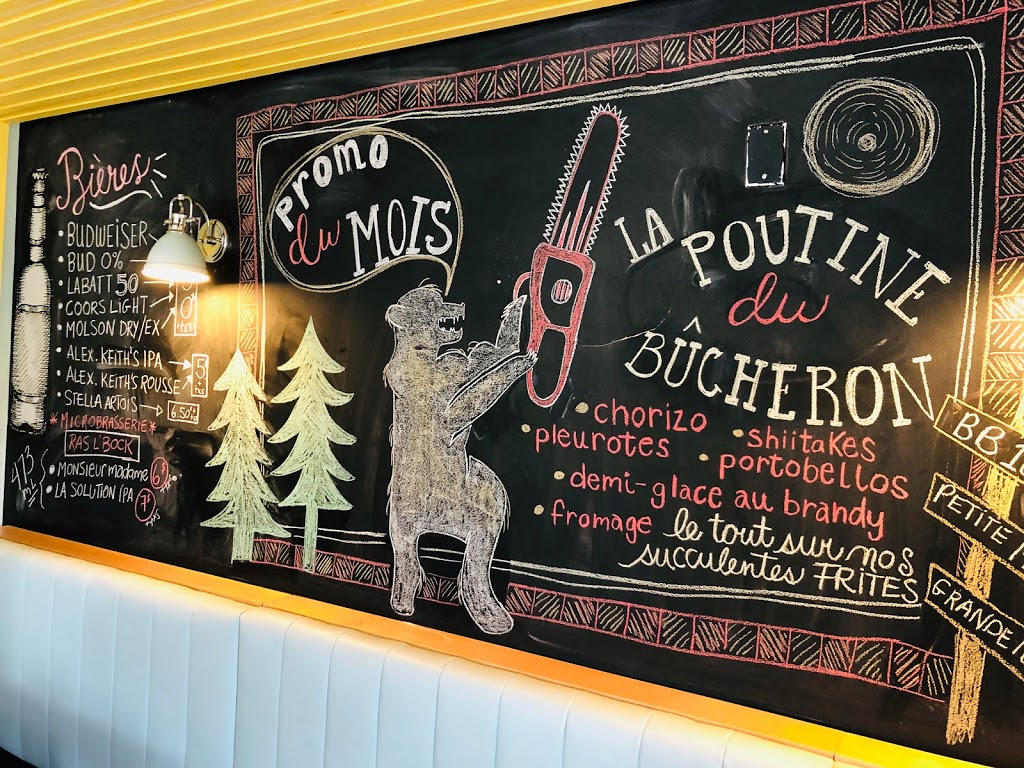 Bières
• BUDWEISER
• BUD 0%
• LABATT 50
• COORS LIGHT
• MOLSON DRY/EX
• ALEX. KEITH'S IPA
5
• ALEX. KEITH'S ROUSSE
• STELLA ARTOIS
6.50
*MICROBRASSERIE*
RAS L'BOCK
473 ml
• Monsieur madame
• LA SOLUTION IPA
7
PROMO
du MOIS
LA POUTINE
du
BÛCHERON
• chorizo
• shiitakes
• pleurotes
• portobellos
• demi-glace au brandy
• fromage
le tout sur nos
succulentes FRITES
BB
PETITE
GRANDE